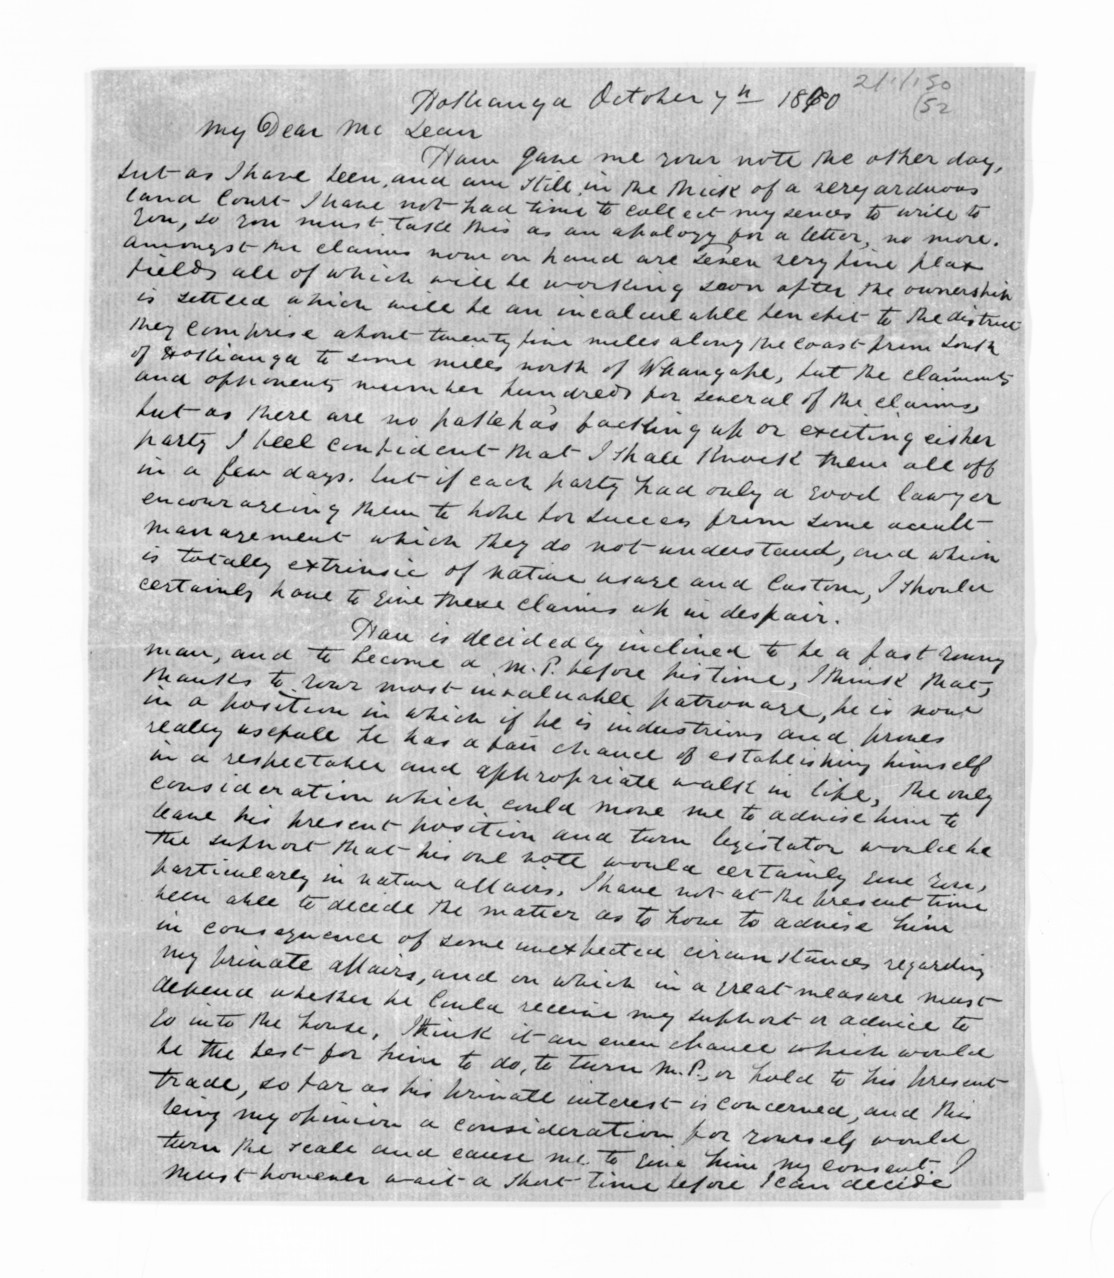 21/1/150
(52
Hokianga October 7th 1870
My Dear Mc Lean
Ham gave me your note the other day,
but as I have been, and am still, in the thick of a very arduous
Land Court I have not had time to collect my sences to write to
you, so you must take this as an apology for a letter, no more.
amongst the claims now on hand are seven very fine flax
fields all of which will be working soon after the ownership
is settled which will be an incalculable benefit to the district
they comprise about twenty five miles along the coast from south
of Hokianga to some miles north of Whangape, but the claimants
and opponents number hundreds for several of the claims,
but as there are no pakehas backing up or exciting either
party I feel confident that I shall knock them all off
in a few days. but if each party had only a good lawyer
encourageing them to hope for success from some occult
management which they do not understand, and which
is totally extrinsic of native usage and Custom, I should
certainly have to give these claims up in despair.
Ham is decidedly inclined to be a fast young
man, and to become a M.P. before his time, I think that,
thanks to your most invaluable patronage, he is now
in a position in which if he is industrious and proves
really usefull he has a fair chance of establishing himself
in a respectable and appropriate walk in life, the only
consideration which could move me to advise him to
leave his present position and turn legistator would be
the support that his one vote would certainly give you,
particularly in native affairs. I have not at the present time
been able to decide the matter as to how to advise him
in consequence of some unexpected circumstances regarding
my private affairs, and on which in a great measure must
depend whether he Could receive my support or advice to
go into the house, I think it an even chance which would
be the best for him to do, to turn M.P., or hold to his present
trade, so far as his private interest is concerned, and this
being my opinion a consideration for yourself would
turn the scale and cause me to give him my consent. I
must however wait a short time before I can decide